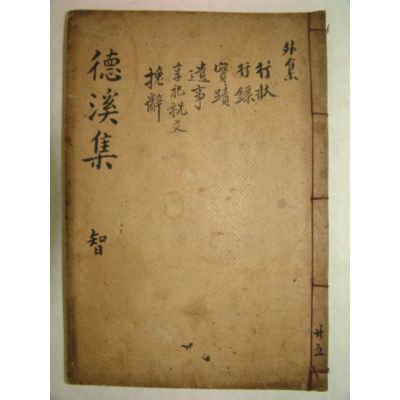 外集
行狀
行錄
實蹟
遺事
享祀祝文
挽辭
德溪集 智
共五